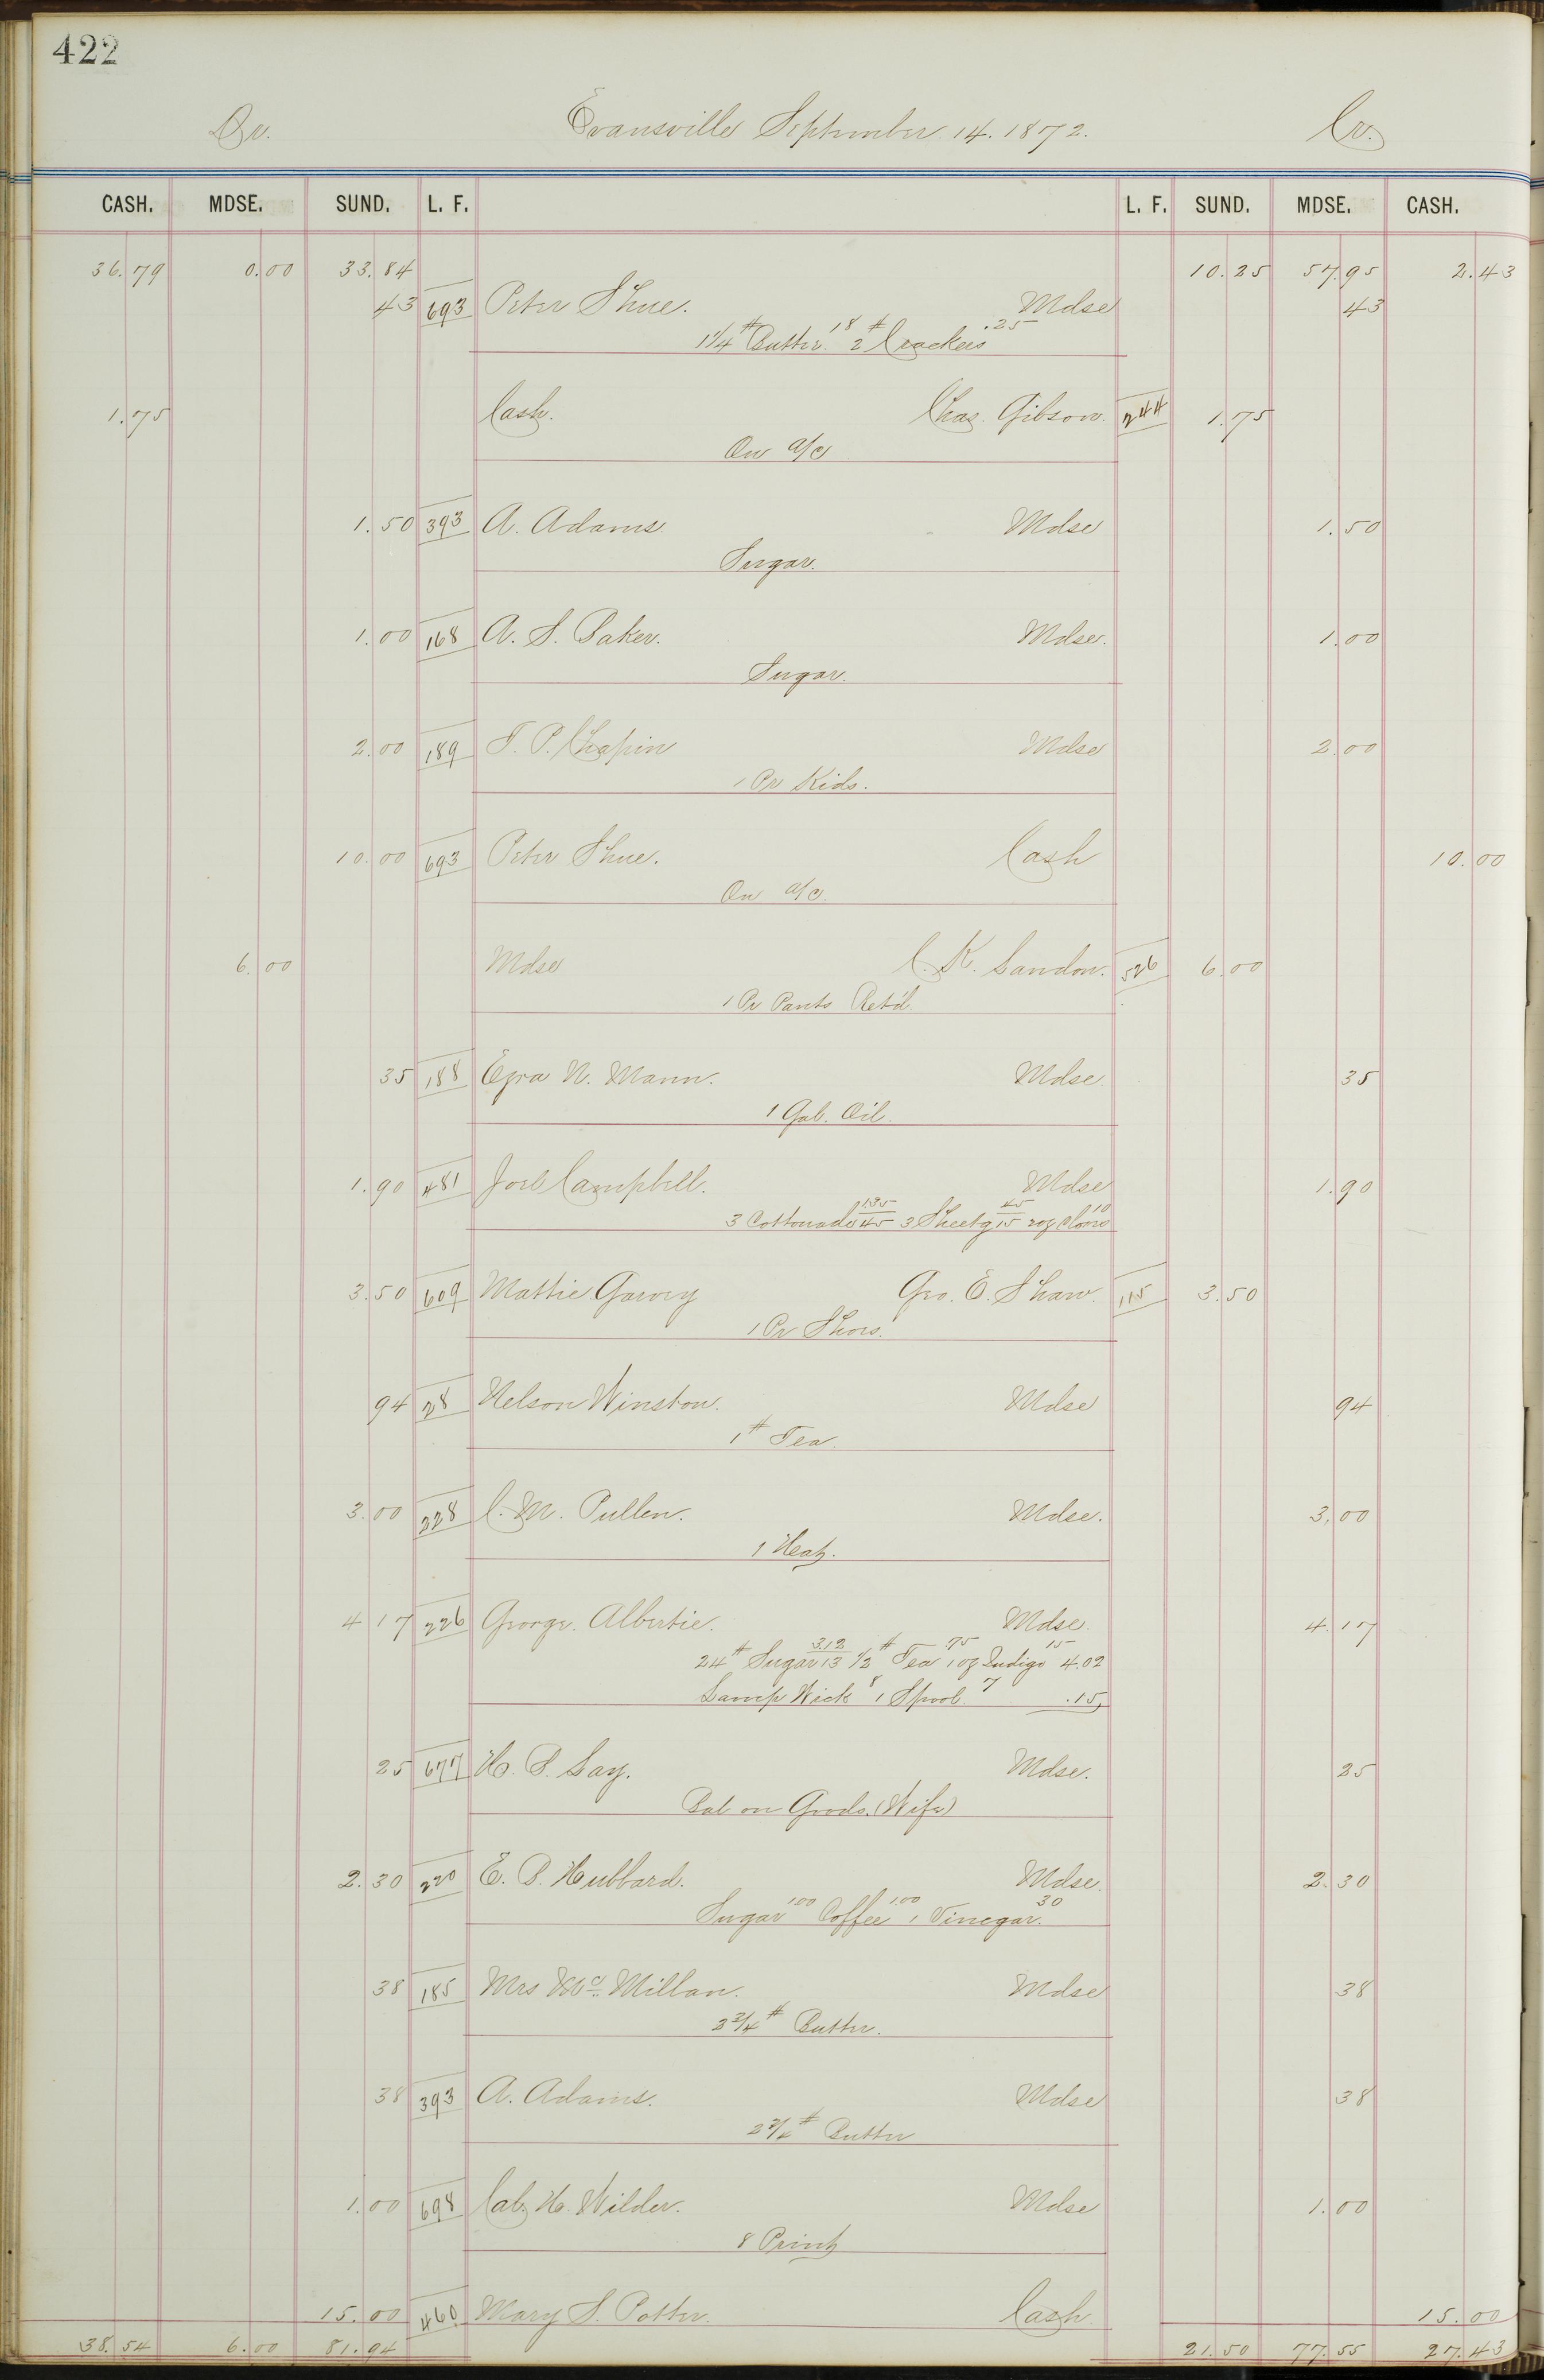 422
Dr. Evansville September. 14. 1872. Cr.
CASH. MDSE. SUND. L. F. L. F. SUND. MDSE. CASH.
36.79 0.00 33.84 10.25 57.95 2.43
43 693 Peter Shue. Mdse 43
1 1/4 # Butter 18 2 # Crackers .25
1.75 Cash. Chas. Gibson. 244 1.75
On a/c
1.50 393 A. Adams Mdse 1.50
Sugar.
1.00 168 A. S. Baker. Mdse. 1.00
Sugar.
2.00 189 T. P. Chapin Mdse 2.00
1 Pr Kids.
10.00 693 Peter Shue. Cash 10.00
On a/c.
6.00 Mdse C. K. Landon. 526 6.00
1 Pr Pants Ret'd.
35 188 Ezra N. Mann. Mdse. 35
1 Gal. Oil.
1.90 481 Joel Campbell. Mdse 1.90
3 Cottonade 1.35 45 3 Sheetg 45 15 2 oz 10
3.50 609 Mattie Garvey Geo. E. Shaw. 115 3.50
1 Pr Shoes.
94 28 Nelson Winston. Mdse 94
1 # Tea.
3.00 228 C. M. Pullen. Mdse. 3.00
1 Hat.
4 17 226 George. Albertie. Mdse. 4.17
24 # Sugar 3.12 13 1/2 # Tea 75 1 oz Indigo 15 4.02
Lamp Wick 8 1 Spool 7 .15
25 677 H. P. Lay. Mdse. 25
Bal on Goods. (Wife)
2.30 220 E. P. Hubbard. Mdse. 2.30
Sugar 1.00 Coffee 1.00 1 Vinegar. 30
38 185 Mrs Mc. Millan. Mdse 38
2 3/4 # Butter.
38 393 A. Adams. Mdse 38
2 3/4 # Butter
1.00 698 Cal. H. Wilder. Mdse 1.00
8 Print
15.00 460 Mary S. Potter. Cash 15.00
38.54 6.00 81.94 21.50 77.55 27.43